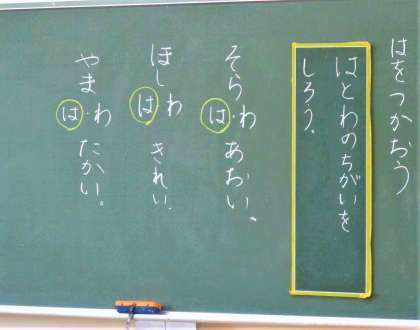 はをつかおう
はとわのちがいを
しろう。
そら は・わ あおい、
ほし は わ きれい.
やま は・わ たかい。